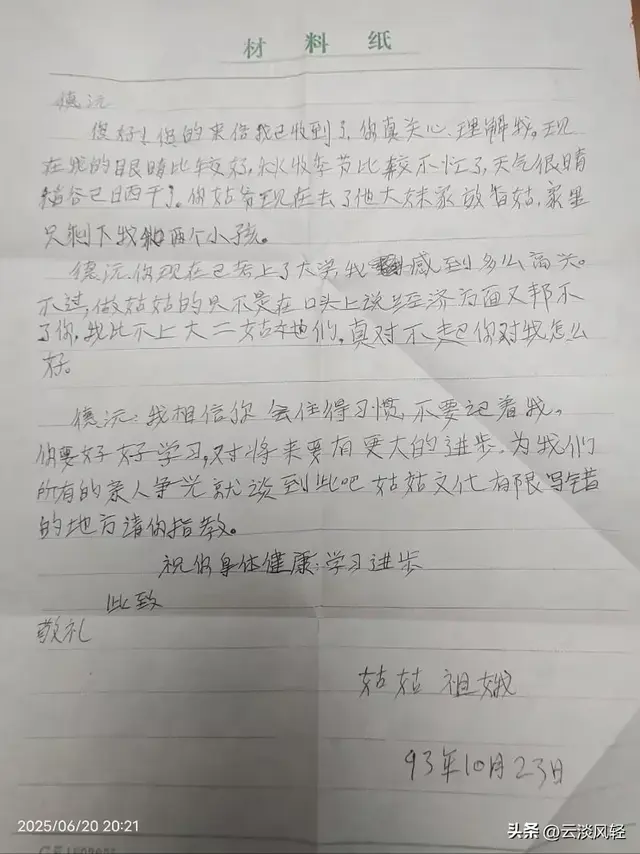 材料纸
德沅
您好！您的来信我已收到了，你真关心、理解我。现
在我的眼睛比较好，秋收季节比较不忙了，天气很晴
稻谷已日西干了。你姑爷现在去了他大妹家放香菇，家里
只剩下我和两个小孩。
德沅，你现在已考上了大学，我感到多么高兴。
不过，做姑姑的只不是在口头上说，经济方面又邦不
了你，我比不上大二姑他们，真对不起你对我怎么
好。
德沅：我相信你会住得习惯，不要记着我，
你要好好学习，对将来要有更大的进步，为我们
所有的亲人争光就谈到此吧姑姑文化有限写错
的地方请你指教。
祝你身体健康：学习进步
此致
敬礼
姑姑 祖娥
93年10月23日
2025/06/20 20:21
头条 @云淡风轻